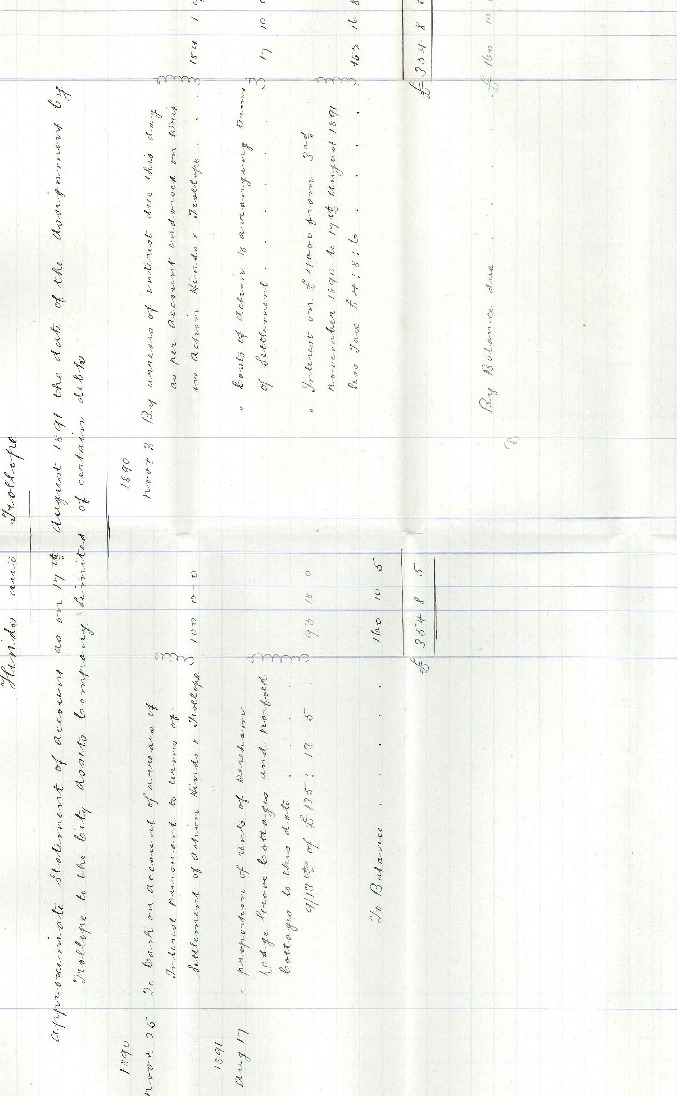 Hinds and Trollope
Approximate Statement of Accounts as on 17th August 1891 the date of the Assignment by
Trollope to the City Assets Company Limited of certain debts
1890
Novr. 25 To Cash on account of arrears of
Interest pursuant to terms of
Settlement of Action Hinds v Trollope 100 0 0
1891
Aug 17 " proportion of rents of
Lodge Grove Cottages and Norfolk
Cottages to this date . . . .
9/13ths of £135 : 13 5 93 18 0
To Balance . . . . . 160 10 5
£ 354 8 5
1890
Novr. 3 By arrears of interest due this day
as per Account endorsed on Writ
in Action Hinds v Trollope . . .
" Costs of Action & arranging terms
of Settlement . . . . . . 17 10
" Interest on £ from 3rd
November 1890 to 17th August 1891
less Tax £4 : 8 : 6 . . . . . 16 8
£ 354 8
By Balance due . . . . . £ 160 10